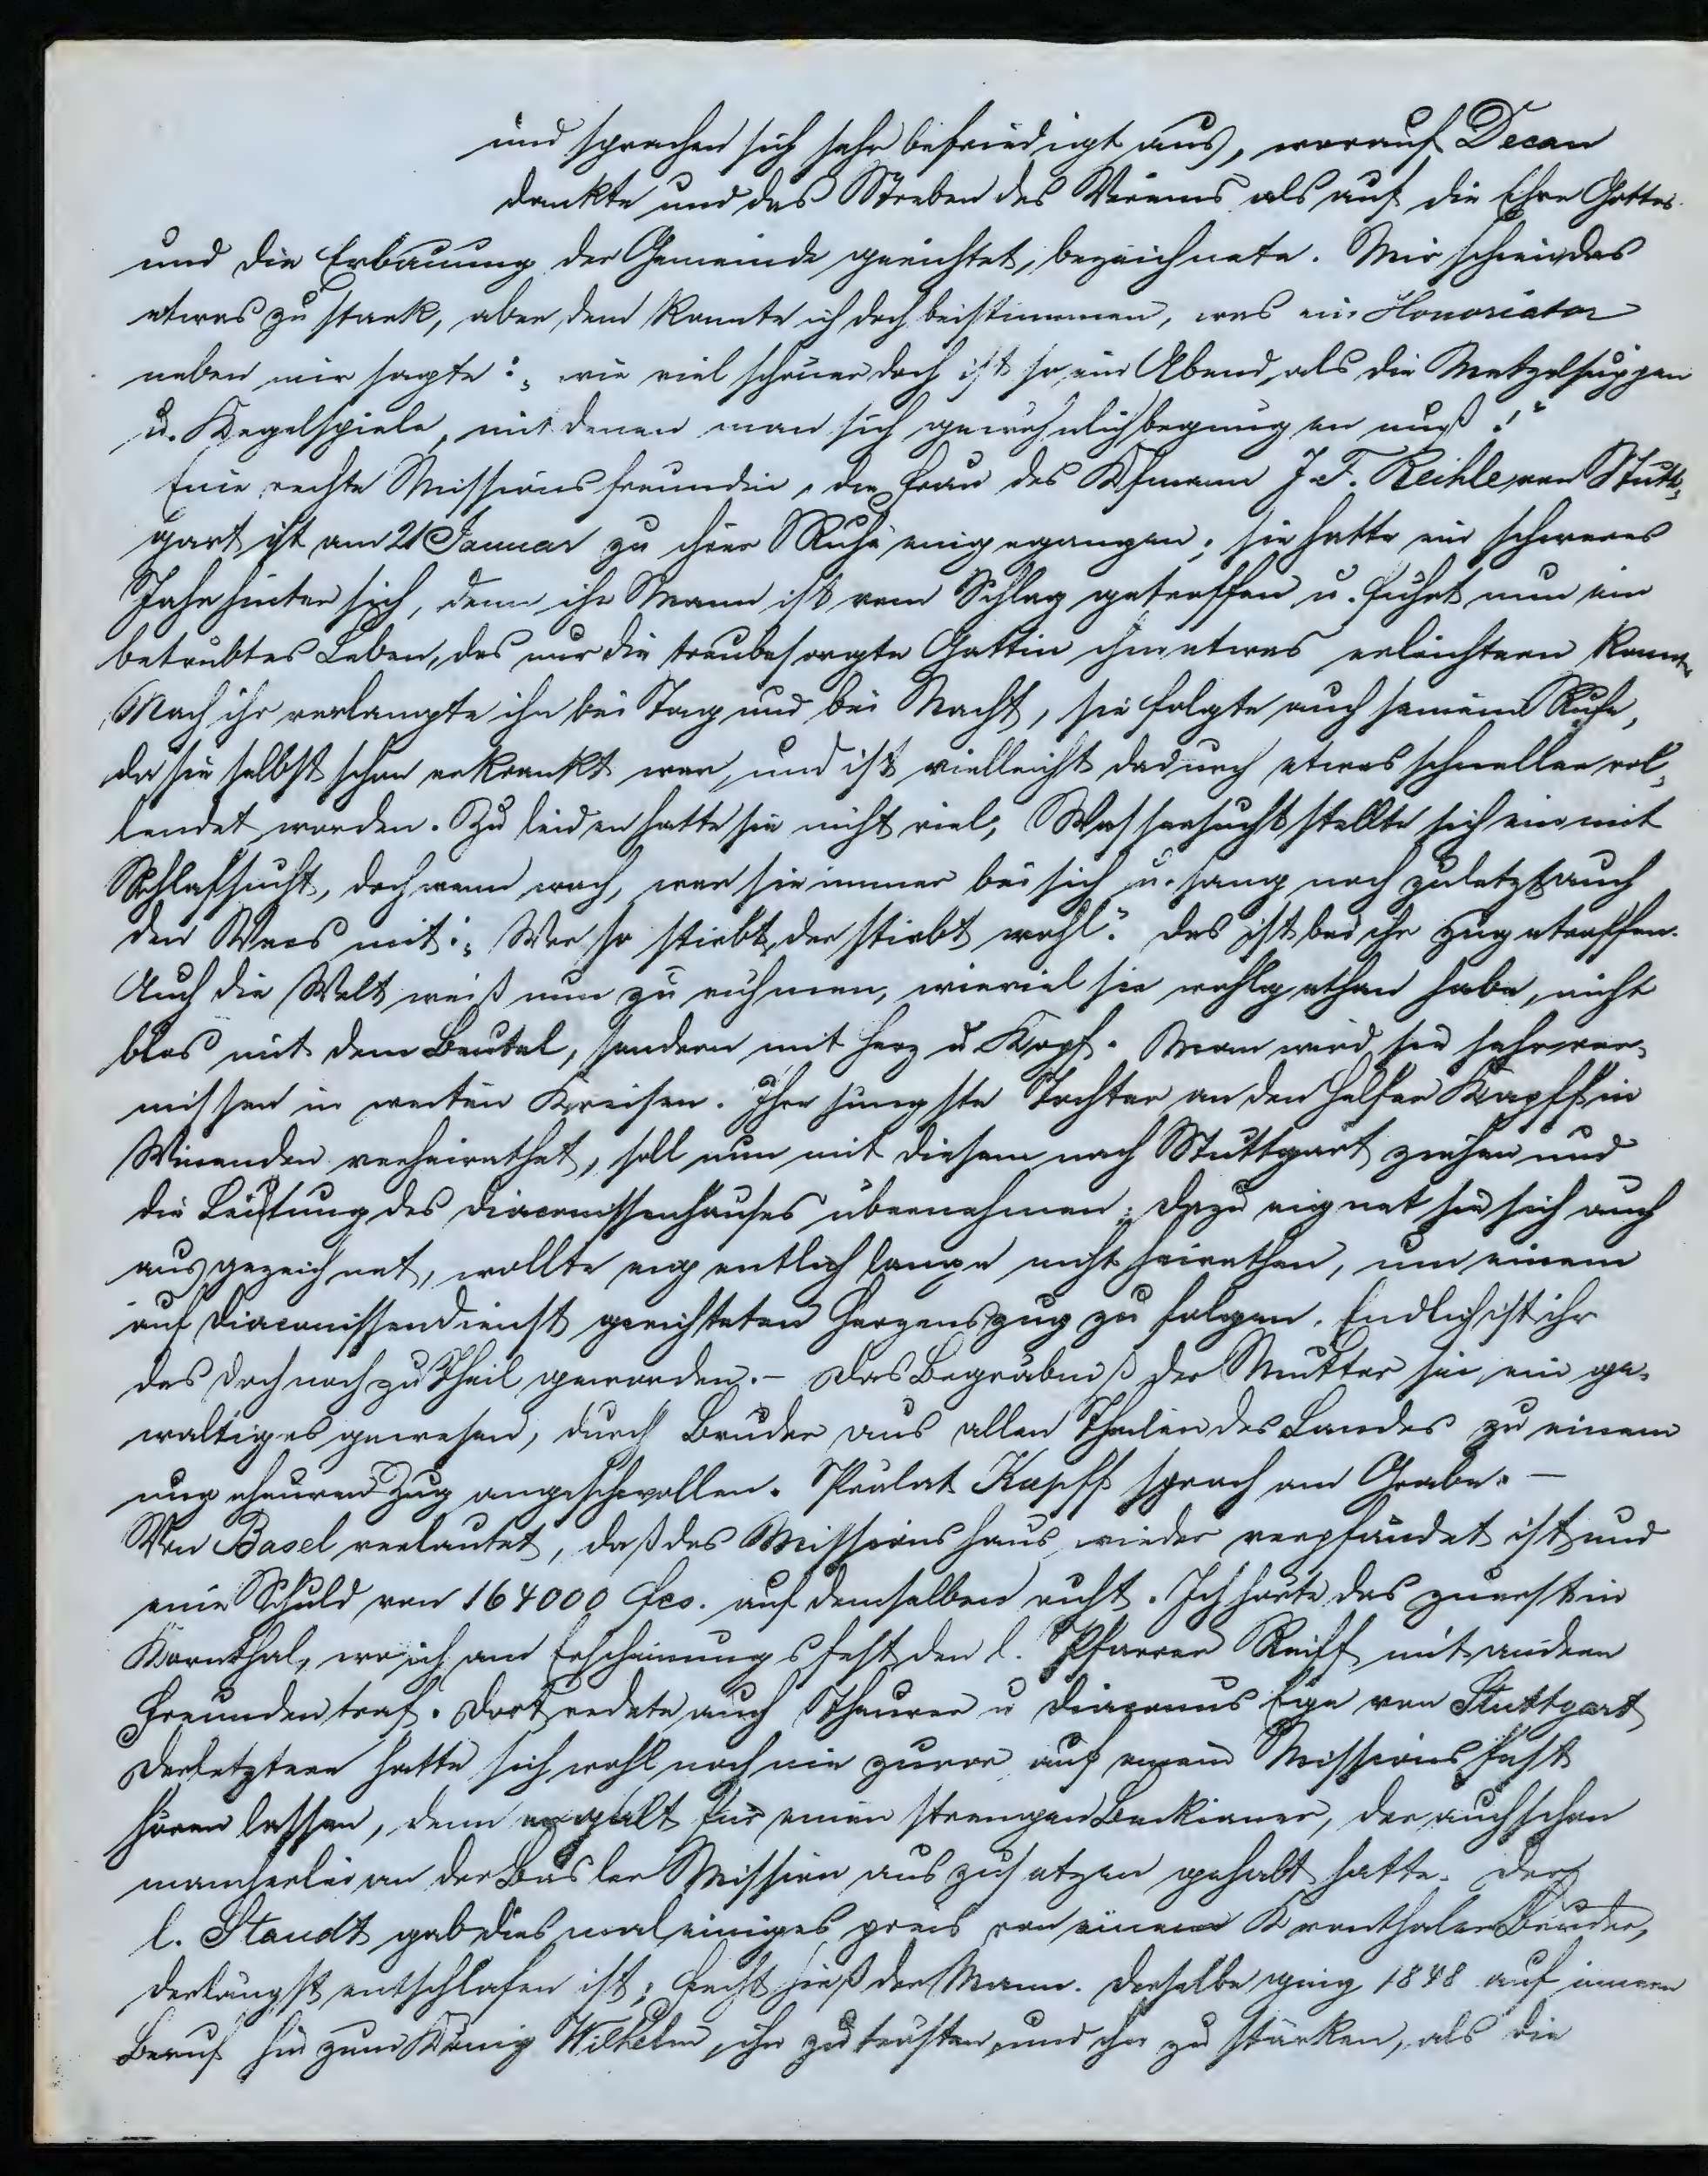 und sprachen sich sehr befriedigt aus, worauf Decan
dankte und das Streben des Vereins als auf die Ehre Gottes
und die Erbauung der Gemeinde gerichtet, bezeichnete. Mir schien das
etwas zu stark, aber dem konnte ich doch beistimmen, was ein Honoriator
neben mir sagte: „wie viel schöner doch ist so ein Abend als die Metzelsuppen
u. Kegelspiele, mit denen man sich gewöhnlich begnügen muß!“
Eine rechte Missionsfreundin, die Frau des Kfmann J. F. Reihle von Stutt-
gart ist am 21 Januar zu ihrer Ruhe eingegangen; sie hatte ein schweres
Jahr hinter sich, denn ihr Mann ist vom Schlag getroffen u. führt nun ein
betrübtes Leben, das nur die treubesorgte Gattin ihm etwas erleichtern konnte
Nach ihr verlangte ihn bei Tag und bei Nacht, sie folgte auch seinem Rufe,
da sie selbst schon erkrankt war, und ist vielleicht dadurch etwas schneller vol-
lendet worden. Zu leiden hatte sie nicht viel, Wassersucht stellte sich ein mit
Schlafsucht, doch wenn wach, war sie immer bei sich u. sang noch zuletzt auch
den Vers mit: „Wer so stirbt, der stirbt wohl.“ Das ist bei ihr zugetroffen.
Auch die Welt weiß nun zu rühmen, wieviel sie wohlgethan habe, nicht
blos mit dem Beutel, sondern mit Herz u Kopf. Man wird sie sehr ver-
missen in weiten Kreisen. Ihre jüngste Tochter an den Helfer Kapff in
Winenden verheirathet, soll nun mit diesem nach Stuttgart ziehen und
die Leitung des Diaconissenhauses übernehmen; dazu eignet sie sich auch
ausgezeichnet, wollte eigentlich lange nicht heirathen, um einem
auf Diaconissendienst gerichteten Herzenszug zu folgen. Endlich ist ihr
das doch noch zu Theil geworden. – Das Begräbniß der Mutter sei ein ge-
waltiges gewesen, durch Brüder aus allen Theilen des Landes zu einem
ungeheuren Zug angeschwollen. Prälat Kapff sprach am Grabe. –
Von Basel verlautet, daß das Missionshaus wieder verpfändet ist und
eine Schuld von 164000 fcs. auf demselben ruht. Ich hörte das zuerst in
Kornthal, wo ich am Erscheinungsfest den l. Pfarrer Reiff mit andern
Freunden traf. Dort redete auch Theurer u Diaconus Eipe von Stuttgart
Der letztere hatte sich wohl noch nie zuvor auf einem Missionsfest
hören lassen, denn er galt für einen strengen Beckianer, der auch schon
mancherlei an der Basler Mission auszusetzen gehabt hatte. Der
l. Staudt gab diesmal einiges preis von einem Kornthaler Bruder,
der längst entschlafen ist; Hecht hieß der Mann. Derselbe ging 1848 auf innern
Beruf hin zum König Wilhelm, ihn zu trösten und ihn zu stärken, als die